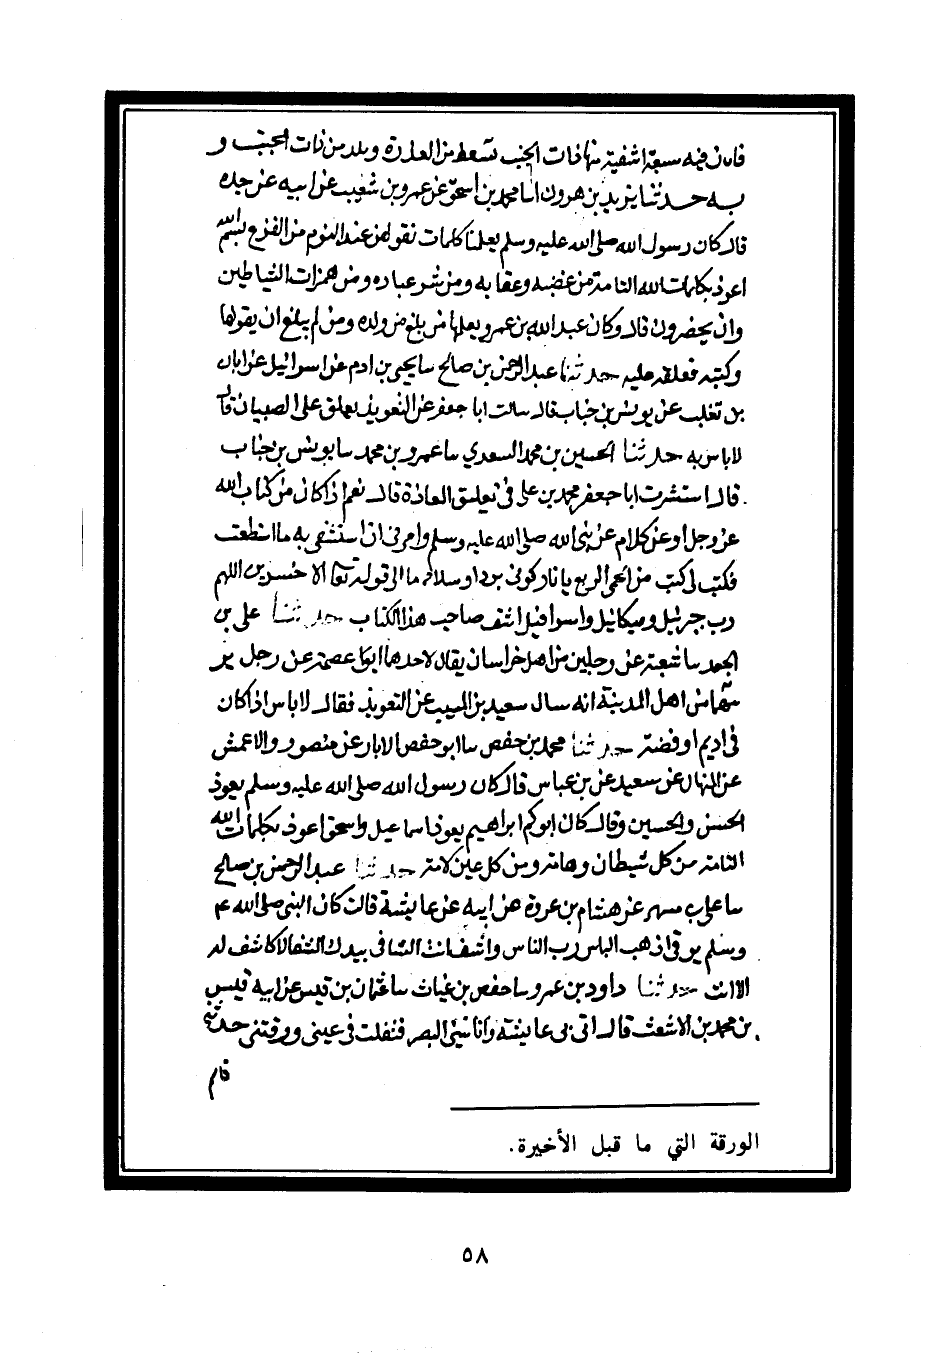 فان فيه سبعة اشفية منها ذات الجنب تسعط من العذرة ويلد من ذات الجنب و
به حدثنا يزيد بن هرون انا محمد بن اسحق عن عمرو بن شعيب عن ابيه عن جده
قال كان رسول الله صلى الله عليه وسلم يعلمنا كلمات نقولهن عند النوم من الفزع بسم الله
اعوذ بكلمات الله التامة من غضبه وعقابه ومن شر عباده ومن همزات الشياطين
وان يحضرون قال وكان عبد الله بن عمرو يعلمها من بلغ من ولده ومن لم يبلغ ان يقولها
وكتبه فعلقه عليه حدثنا عبد الرحمن بن صالح سا يحيى بن ادم عن اسرائيل عن ابان
بن تغلب عن يونس بن خباب قال سالت ابا جعفر عن التعويذ يعلق على الصبيان قال
لا باس به حدثنا الحسين بن محمد السعدي سا عمرو بن محمد سا يونس بن خباب
قال استشرت ابا جعفر محمد بن علي في تعليق المعاذة قال نعم اذا كان من كتاب الله
عز وجل او عن كلام عن نبي الله صلى الله عليه وسلم وامرني ان استشفي به ما استطعت
فكتب لي كتب من الحمى الربع يا نار كوني بردا وسلاما الى قوله تعا الاخسرين اللهم
رب جبرئيل وميكائيل واسرافيل اشف صاحب هذا الكتاب حدثنا علي بن
الجعد سا شعبة عن رجلين من اهل خراسان يقال لاحدهما ابو عصمة عن رجل
من اهل المدينة انه سال سعيد بن المسيب عن التعويذ فقال لا باس اذا كان
في اديم او فضة حدثنا محمد بن حفص سا ابو حفص الابار عن منصور والاعمش
عن المنهال عن سعيد عن بن عباس قال كان رسول الله صلى الله عليه وسلم يعوذ
الحسن والحسين وقال كان ابوكم ابراهيم يعوذ اسماعيل واسحق اعوذ بكلمات الله
التامة من كل شيطان وهامة ومن كل عين لامة حدثنا عبد الرحمن بن صالح
سا علي بن مسهر عن هشام بن عروة عن ابيه عن عايشة قالت كان النبي صلى الله ع
وسلم يرقي اذهب الباس رب الناس واشف انت الشافي بيدك الشفا لا كاشف له
الا انت حدثنا داود بن عمرو سا حفص بن غياث سا عثمان بن قيس عن ابيه قيس
بن محمد بن الاشعث قال اتي بي عايشة وانا شيئ البصر فتفلت في عيني ورقتني حدثنا
الورقة التي ما قبل الأخيرة.
٥٨